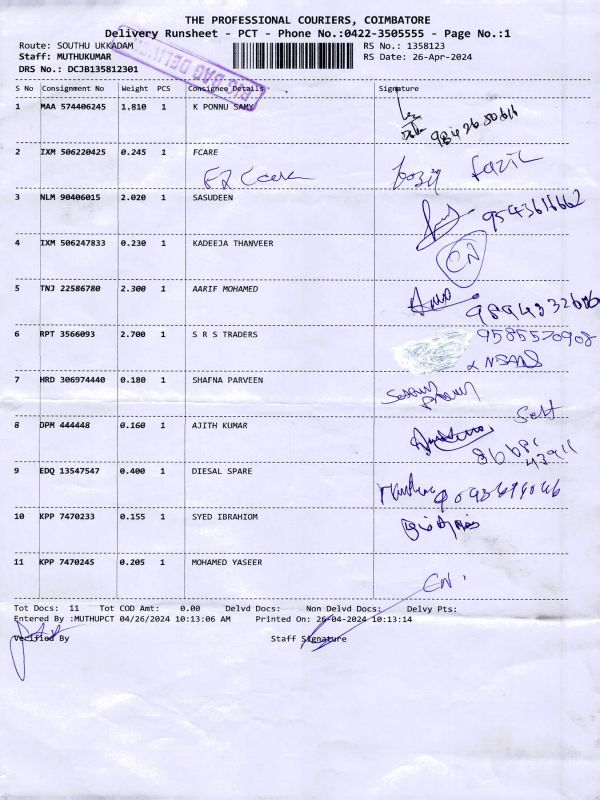 THE PROFESSIONAL COURIERS, COIMBATORE
Delivery Runsheet - PCT - Phone No.:0422-3505555 - Page No.:1
Route: SOUTHU UKKADAM RS No.: 1358123
Staff: MUTHUKUMAR RS Date: 26-Apr-2024
DRS No.: DCJB135812301
S No Consignment No Weight PCS Consignee Details Signature
1 MAA 574406245 1.810 1 K PONNU SAMY
2 IXM 506220425 0.245 1 FCARE
Fazil
3 NLM 90406015 2.020 1 SASUDEEN
9543611662
4 IXM 506247833 0.230 1 KADEEJA THANVEER
CN
5 TNJ 22586780 2.300 1 AARIF MOHAMED
6 RPT 3566093 2.700 1 S R S TRADERS
9585520908
7 HRD 306974440 0.180 1 SHAFNA PARVEEN
8 DPM 444448 0.160 1 AJITH KUMAR
Self
9 EDQ 13547547 0.400 1 DIESAL SPARE
10 KPP 7470233 0.155 1 SYED IBRAHIOM
11 KPP 7470245 0.205 1 MOHAMED YASEER
CN
Tot Docs: 11 Tot COD Amt: 0.00 Delvd Docs: Non Delvd Docs: Delvy Pts:
Entered By :MUTHUPCT 04/26/2024 10:13:06 AM Printed On: 26-04-2024 10:13:14
Verified By Staff Signature